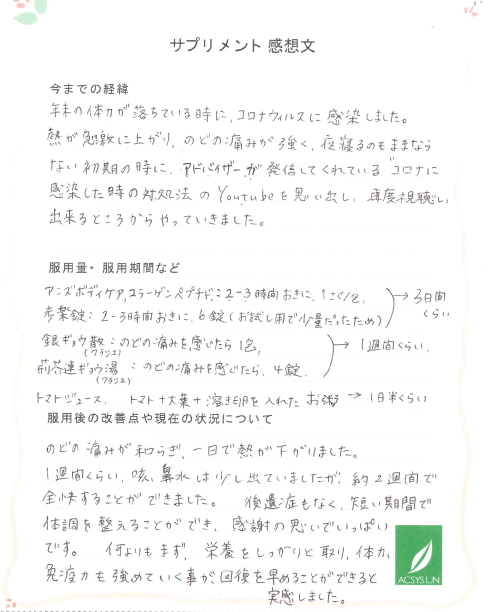 サプリメント 感想文
今までの経緯
年末の体力が落ちている時に、コロナウィルスに感染しました。
熱が急激に上がり、のどの痛みが強く、夜寝るのもままなら
ない初期の時に、アドバイザーが発信してくれている"コロナに
感染した時の対処法のYoutubeを思い出し、再度視聴し、
出来るところからやっていきました。
服用量・服用期間など
アンズボディケア、コラーゲンペプチド:2-3時間おきに、1さじ/包、 → 3日間くらい
歩楽錠:2-3時間おきに、6錠(お試し用で少量だったため)
銀ギョウ散:のどの痛みを感じたら1包、 → 1週間くらい.
(クラシエ)
荊芥連ギョウ湯:のどの痛みを感じたら、4錠.
(クラシエ)
トマトジュース、トマト+大葉+溶き卵を入れたお粥 → 1日半くらい
服用後の改善点や現在の状況について
のどの痛みが和らぎ、一日で熱が下がりました。
1週間くらい、咳、鼻水は少し出ていましたが、約2週間で
全快することができました。 後遺症もなく、短い期間で
体調を整えることができ、感謝の思いでいっぱい
です。 何よりもまず、栄養をしっかりと取り、体力、
免疫力を強めていく事が回復を早めることができると
実感しました。
ACSYSLN